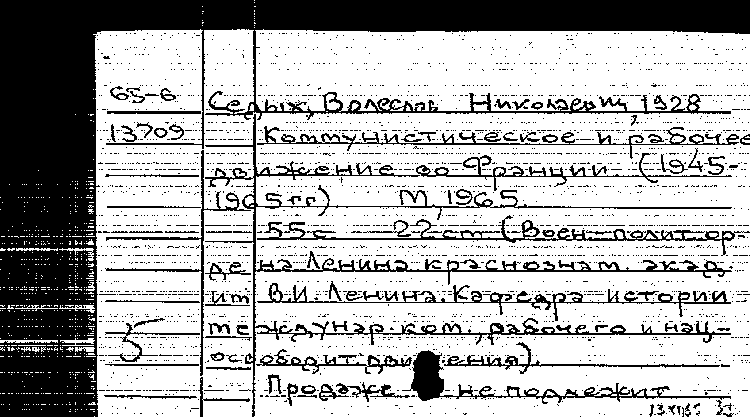 65-6 Седых, Волеслав Николаевич, 1928
13709 Коммунистическое и рабочее
движение во Франции. (1945-
1965 гг) М, 1965.
55 с 22 см (Воен.-полит ор-
дена Ленина краснознам. акад.
им В.И. Ленина. Кафедра истории
5 междунар. ком., рабочего и нац-
освободит. движения).
Продаже не подлежит